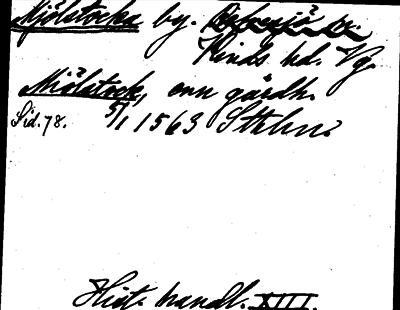 Mjölstocka by.
Kinds hd. Vg.
Miölstock, enn gårdh.
Sid. 78. 5/1 1563 Sthlm.
Hist. handl. XIII.